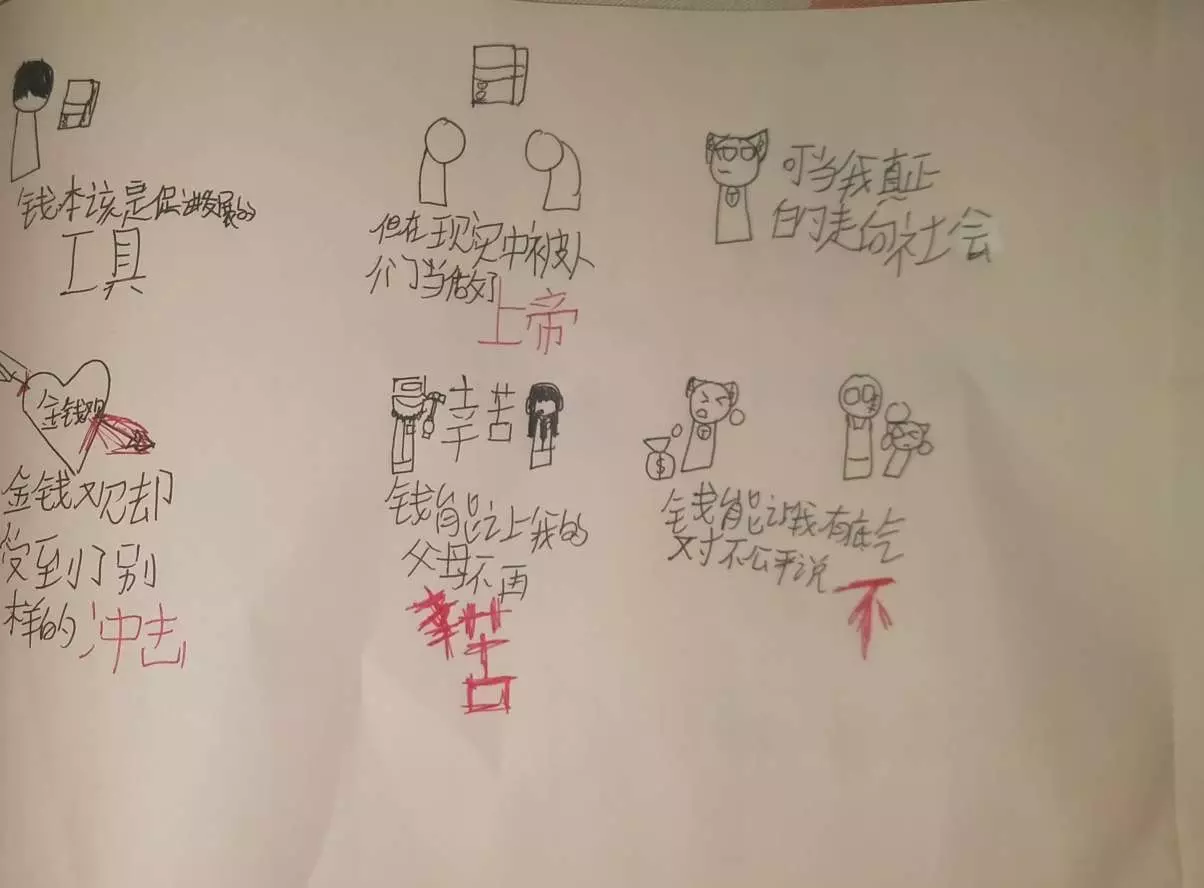 钱本该是促进发展的
工具
但在现实中被人
们当做了
上帝
叮当我真正
的走向社会
金钱观
金钱观却
受到了别
样的冲击
辛苦
钱能让我的
父母不再
辛苦
$
钱能让我有底气
对不公平说
不